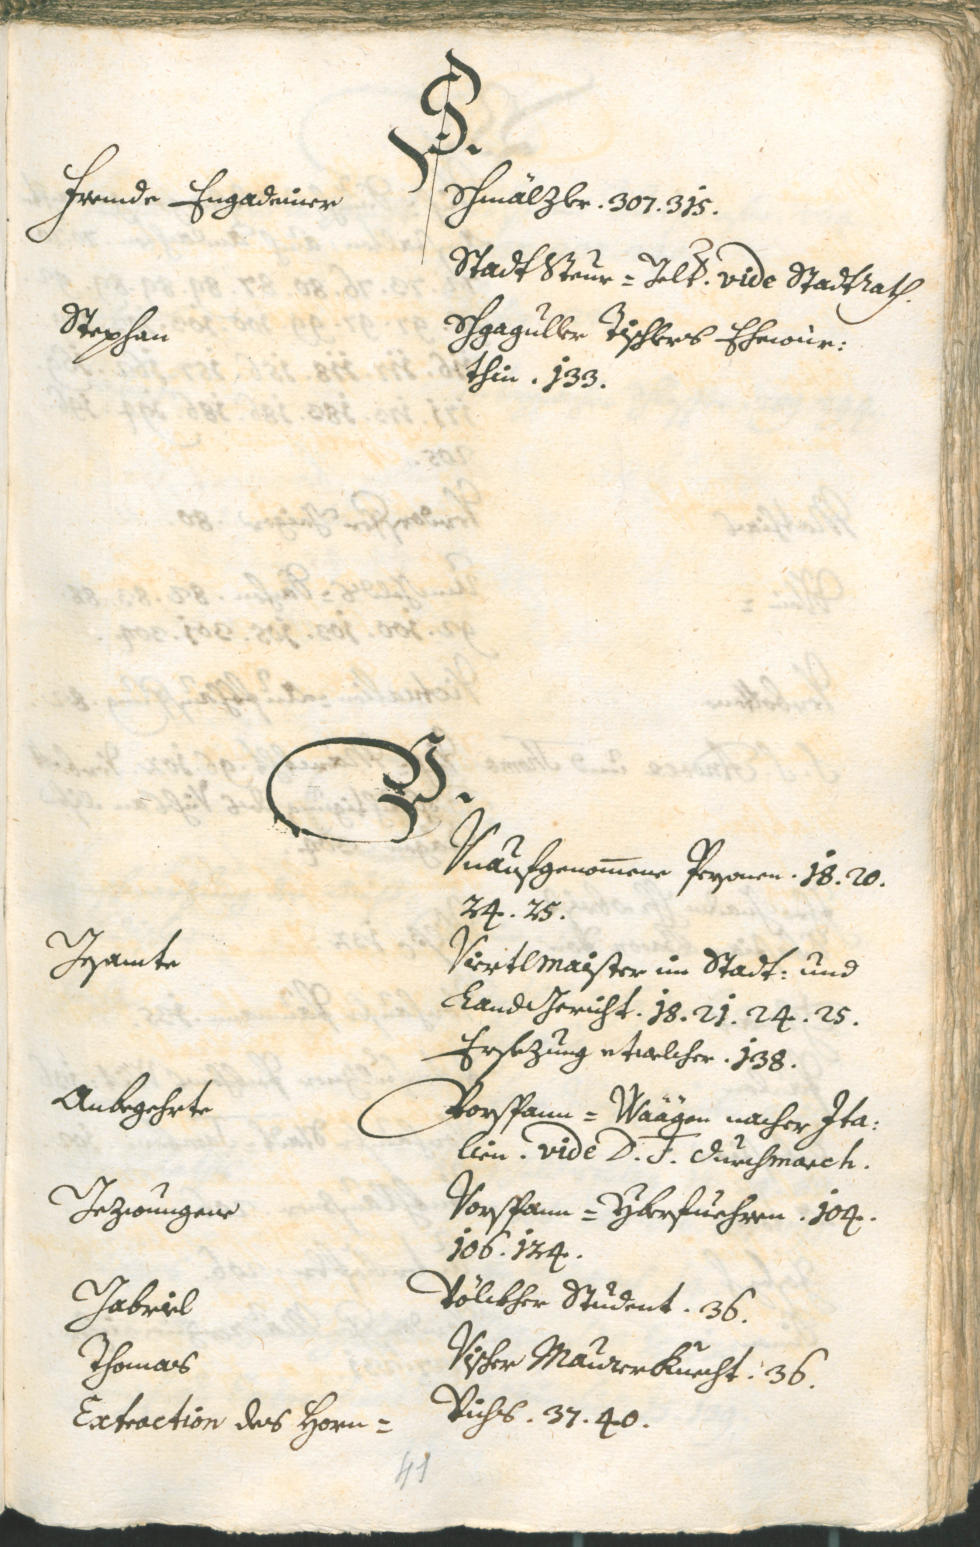 S.
Fremde Engadeiner Schmälzler . 307. 315.
Stadt Steur = Gelt. vide Stadt Rath.
Stephan Schgaguller Tischlers Ehewür:
thin . 133.
V.
Vnaufgenom̅ene Personen . 18. 20.
24. 25.
Gesamte Viertlmaister im Stadt: und
Landgericht. 18. 21. 24. 25.
Ersezung etwelcher . 138.
Anbegehrte Vorspann = Waägen nacher Ita:
lien . vide D. F. Durchmarch.
Gezwungene Vorspann = Yberfuehren . 104.
106. 124.
Gabriel Völckher Student . 36.
Thomas Vischer Maurer Knecht . 36.
Extraction des Horn = Vichs . 37. 40.
41